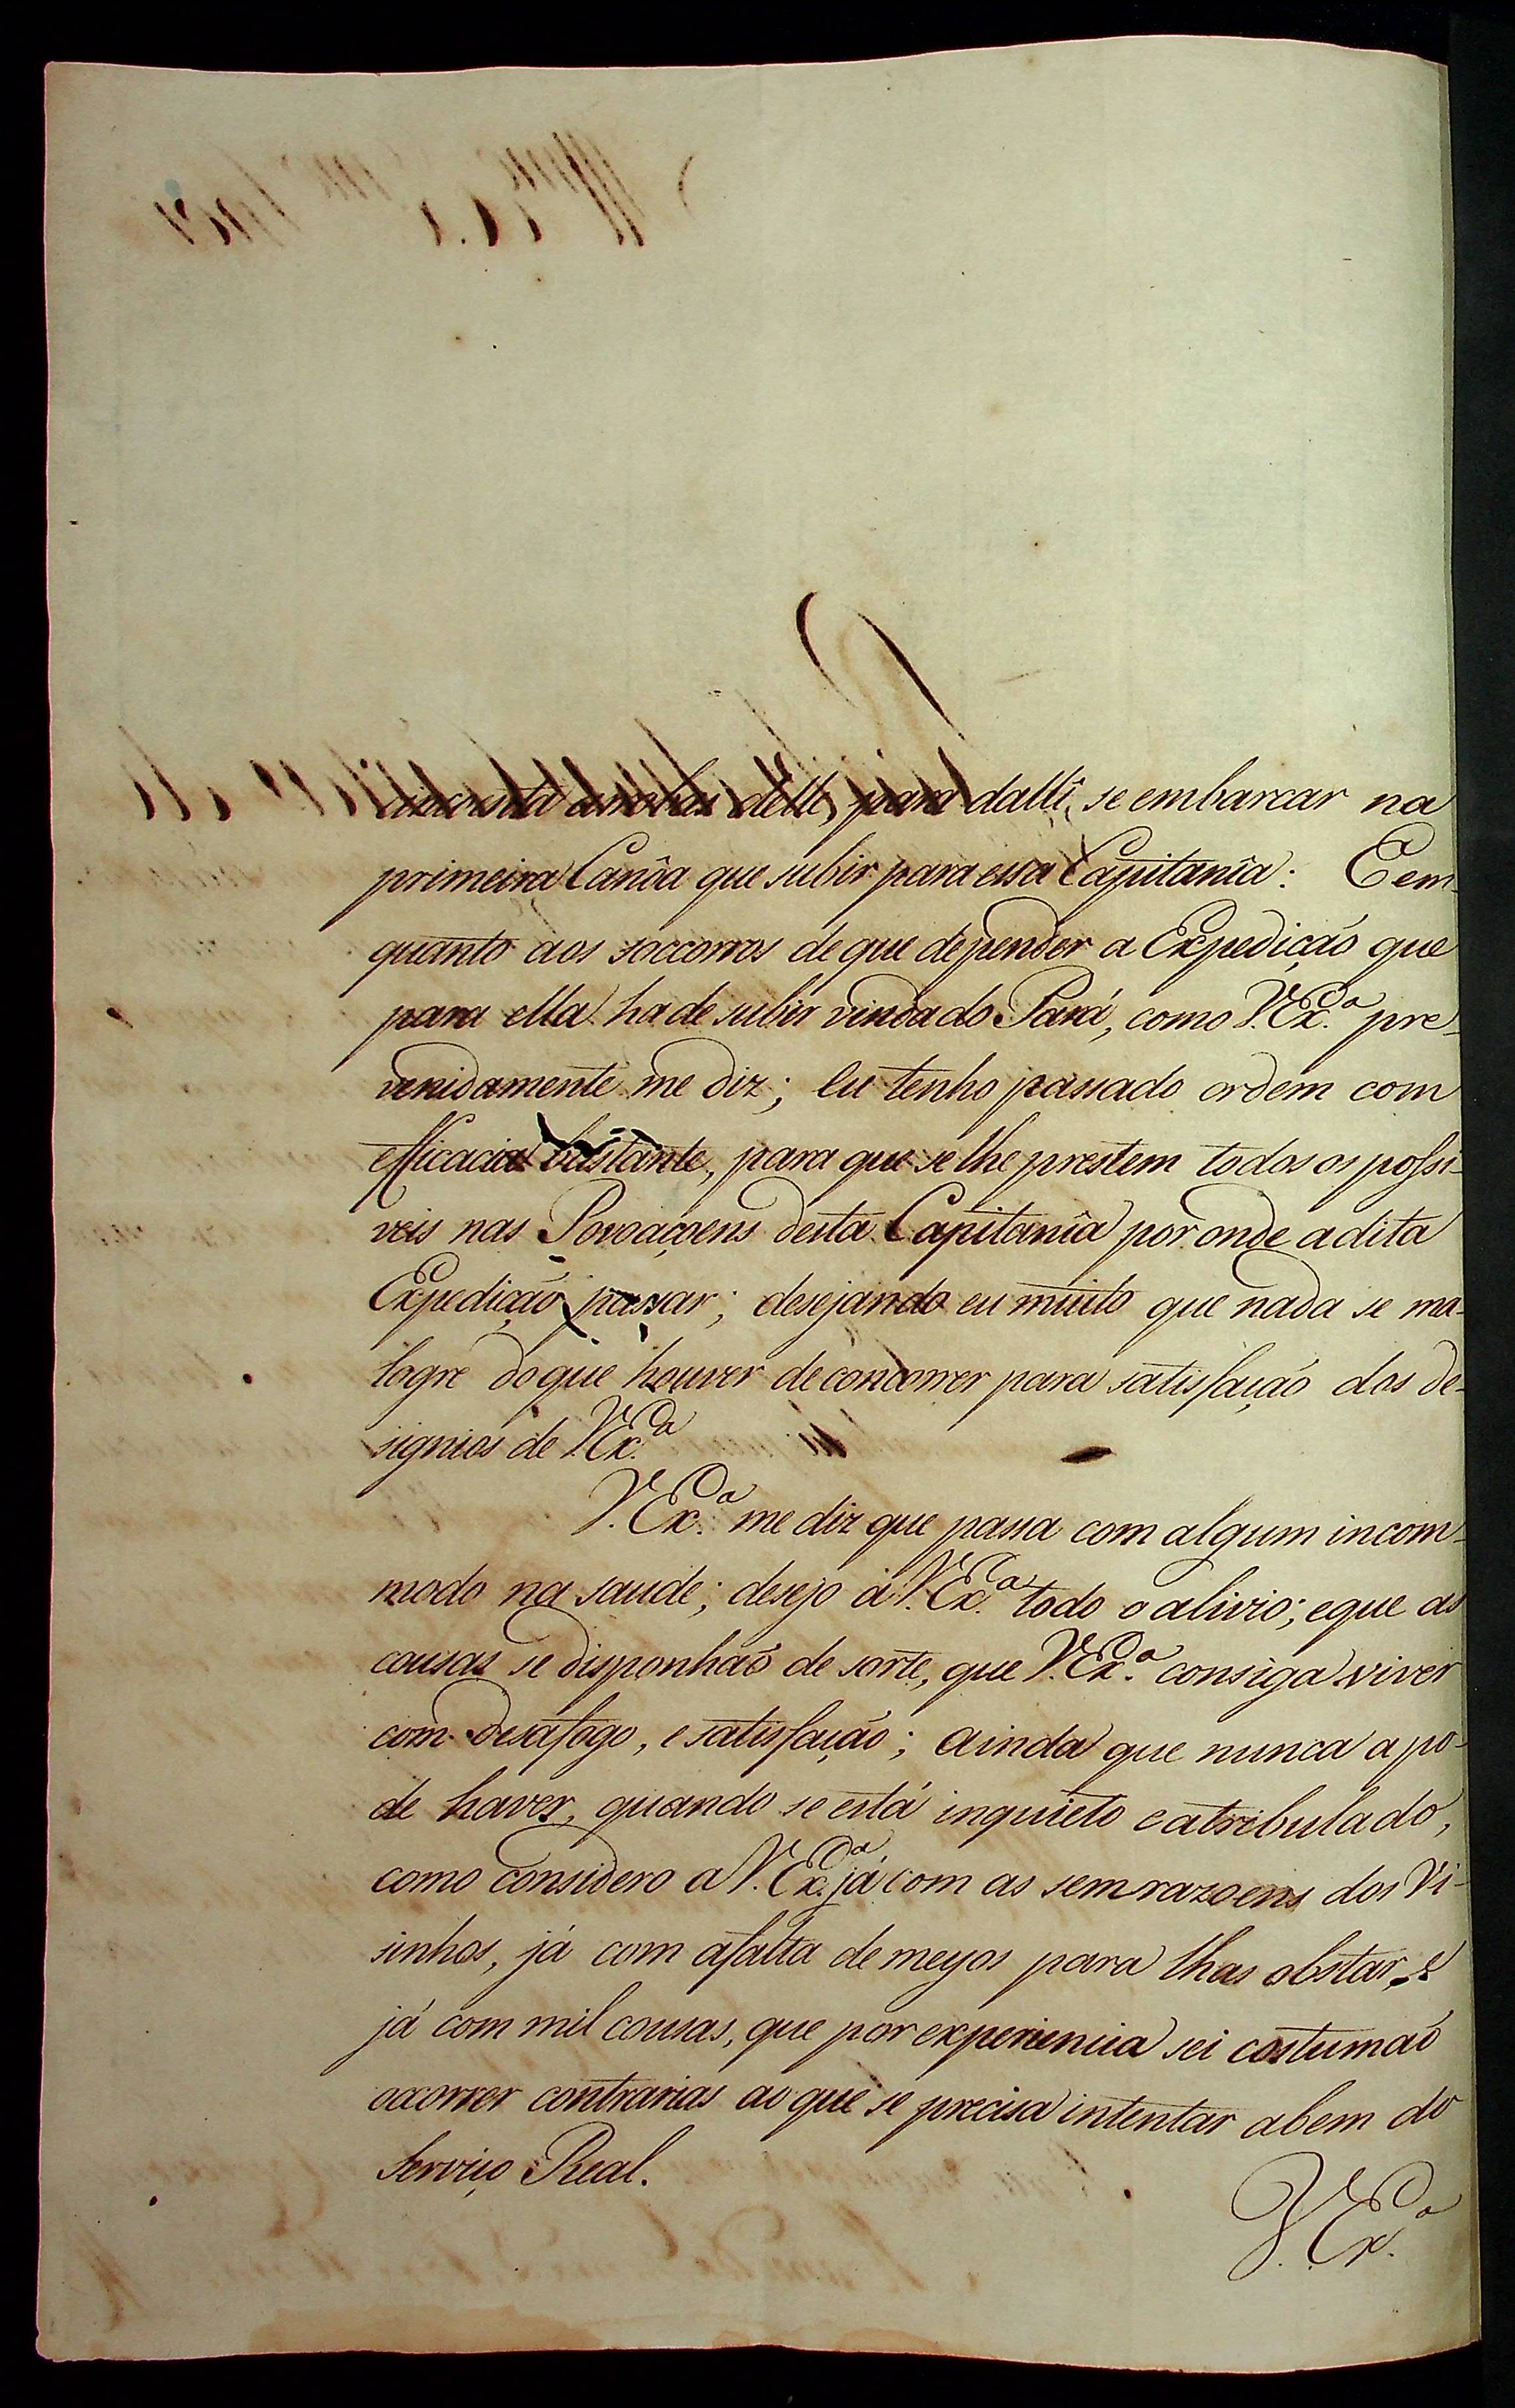 cincoenta arrobas délle, para dallî se embarcar na
primeira Canôa que subir para essa Capitanîa: E em-
quanto aos soccorros de que depender a Expedição que
para ella ha de subir vinda do Pará, como V. Ex.ª pre-
venidamente me diz; eu tenho passado ordem com
efficacia bastante, para que se lhe prestem todos os possi-
veis nas Povoaçoens desta Capitanîa por onde a dita
Expedição passar; desejando eu muito que nada se ma-
logre do que houver de concorrer para satisfação dos de-
signios de V. Ex.ª
V. Ex.ª me diz que passa com algum incom-
modo na saude; desejo a V. Ex.ª todo o alivio; e que as
cousas se disponhaõ de sorte, que V. Ex.ª consiga viver
com desafogo, e satisfação; ainda que nunca a po-
de haver, quando se está inquieto e atribulado,
como considero a V. Ex.ª já com as semrazoens dos Vi-
sinhos, já com a falta de meyos para lhas obstar, e
já com mil cousas, que por experiencia sei costumaõ
occorrer contrarias ao que se precisa intentar a bem do
Serviço Real.
V. Ex.ª